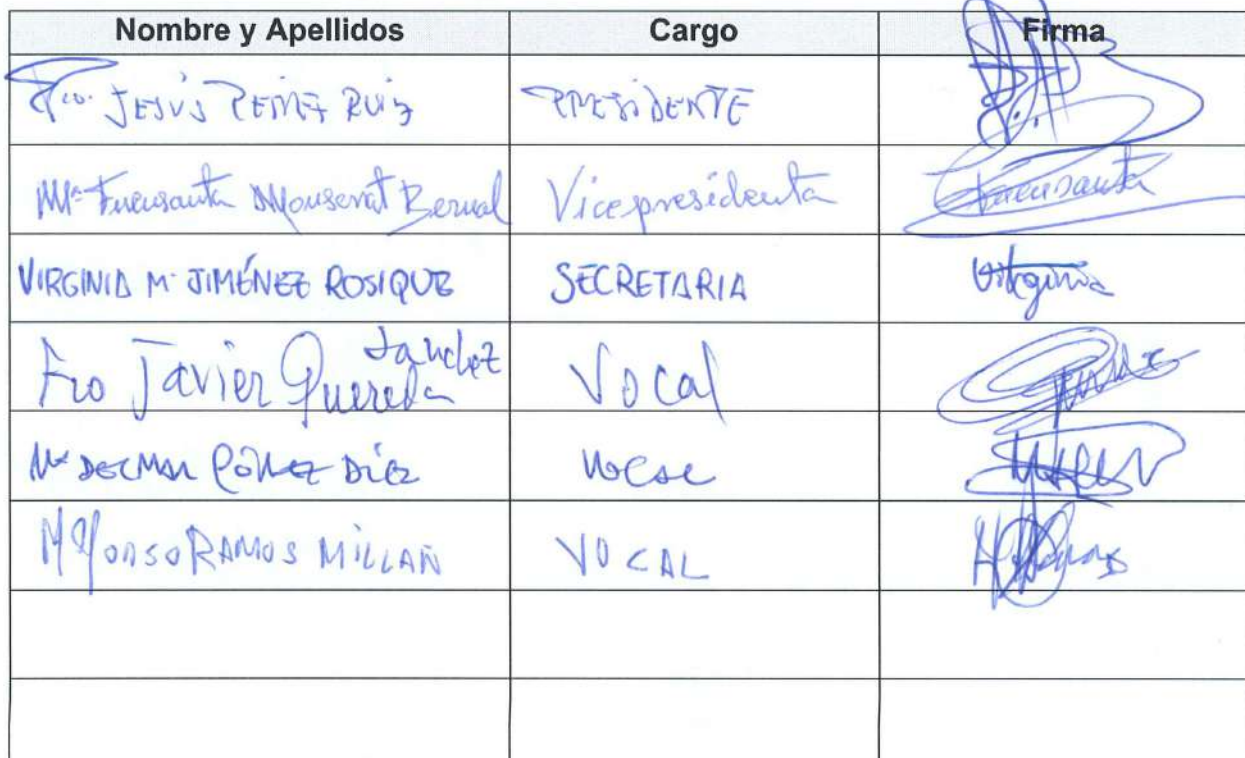 Nombre y Apellidos Cargo Firma
Fco. JESÚS PÉREZ RUIZ PRESIDENTE
Mª Fuensanta Monserrat Bernal Vicepresidenta Fuensanta
VIRGINIA Mª JIMÉNEZ ROSIQUE SECRETARIA Virginia
Fco Javier Quereda Sanchez Vocal
Mª DEL MAR GÓMEZ DÍEZ VOCAL
ALFONSO RAMOS MILLÁN VOCAL